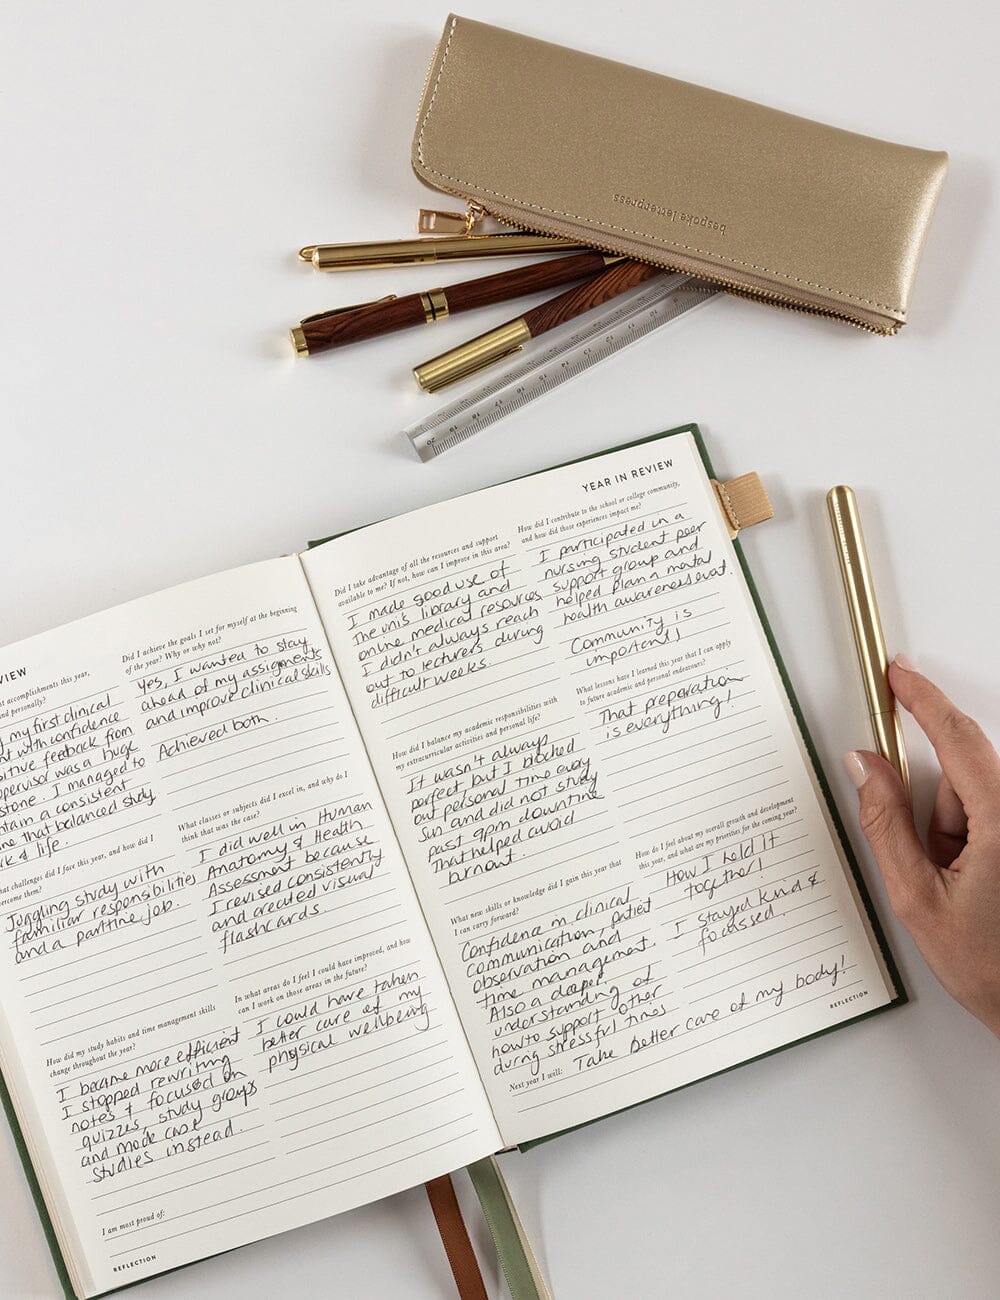 bespoke letterpress
20 19 18 17 16 15 14 13 12 11 10
VIEW
at accomplishments this year,
and personally?
my first clinical
with confidence
feedback from
was a huge
I managed to
a consistent
that balanced study
& life.
Did I achieve the goals I set for myself at the beginning
of the year? Why or why not?
Yes, I wanted to stay
ahead of my assignments
and improve clinical skills
Achieved both.
challenges did I face this year, and how did I
overcome them?
Juggling study with
familiar responsibilities
and a partime job.
What classes or subjects did I excel in, and why do I
think that was the case?
I did well in Human
Anatomy & Health
Assessment because
I revised consistently
and created visual
flashcards.
How did my study habits and time management skills
change throughout the year?
I became more efficient
I stopped rewriting
notes & focused on
quizzes, study groups
and made case
studies instead.
In what areas do I feel I could have improved, and how
can I work on those areas in the future?
I could have taken
better care of my
physical wellbeing
I am most proud of:
REFLECTION
YEAR IN REVIEW
Did I take advantage of all the resources and support
available to me? If not, how can I improve in this area?
I made good use of
The uni's library and
online medical resources
I didn't always reach
out to lecturers during
difficult weeks.
How did I contribute to the school or college community,
and how did those experiences impact me?
I participated in a
nursing student peer
support group and
helped plan a mental
health awareness evat.
Community is
important!
How did I balance my academic responsibilities with
my extracurricular activities and personal life?
It wasn't always
perfect but I blocked
out personal time every
Sun and did not study
past 9pm downtime
That helped avoid
burnout.
What lessons have I learned this year that I can apply
to future academic and personal endeavours?
That preparation
is everything!
What new skills or knowledge did I gain this year that
I can carry forward?
Confidence in clinical
communication, patiet
observation and
time management.
Also a deeper
understanding of
how to support other
during stressful times
How do I feel about my overall growth and development
this year, and what are my priorities for the coming year?
How I held it
together!
I stayed kind &
focussed.
Next year I will: Take better care of my body!
REFLECTION